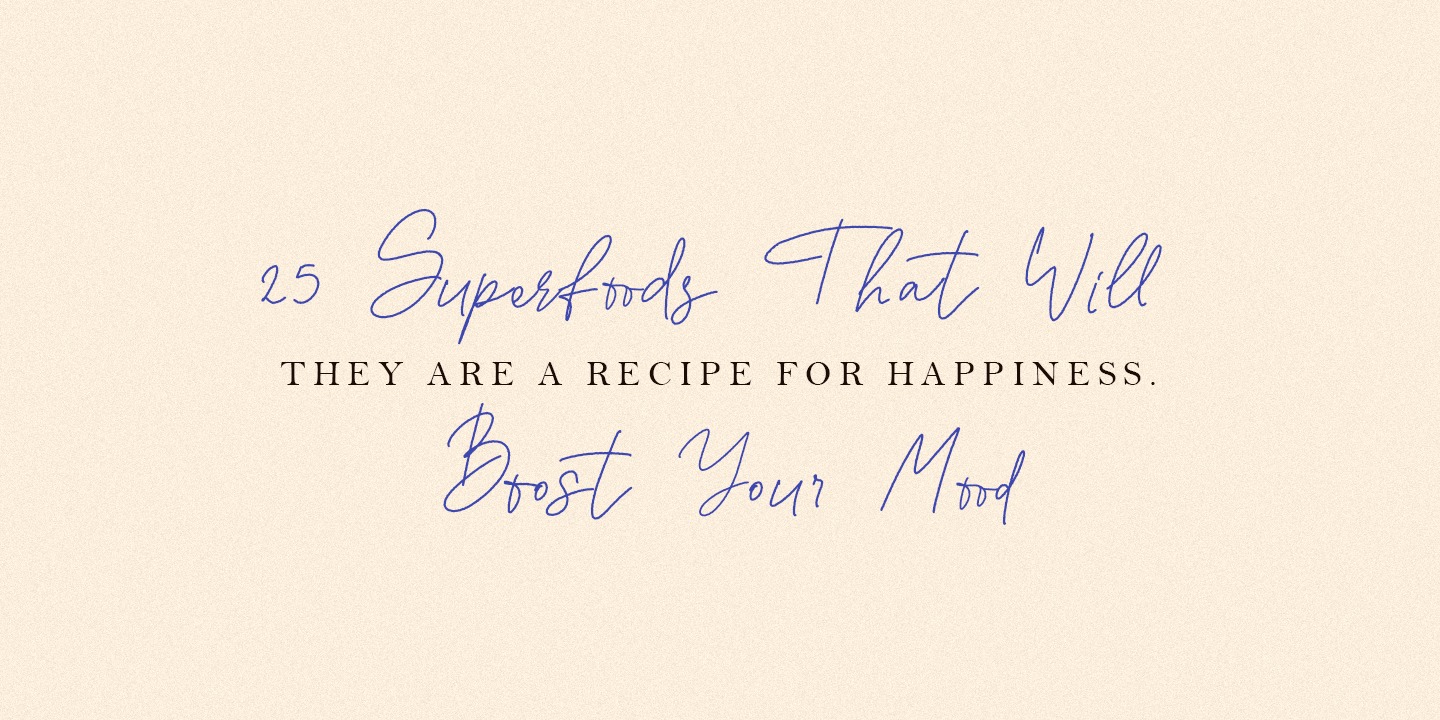 25 Superfoods That Will
THEY ARE A RECIPE FOR HAPPINESS.
Boost Your Mood